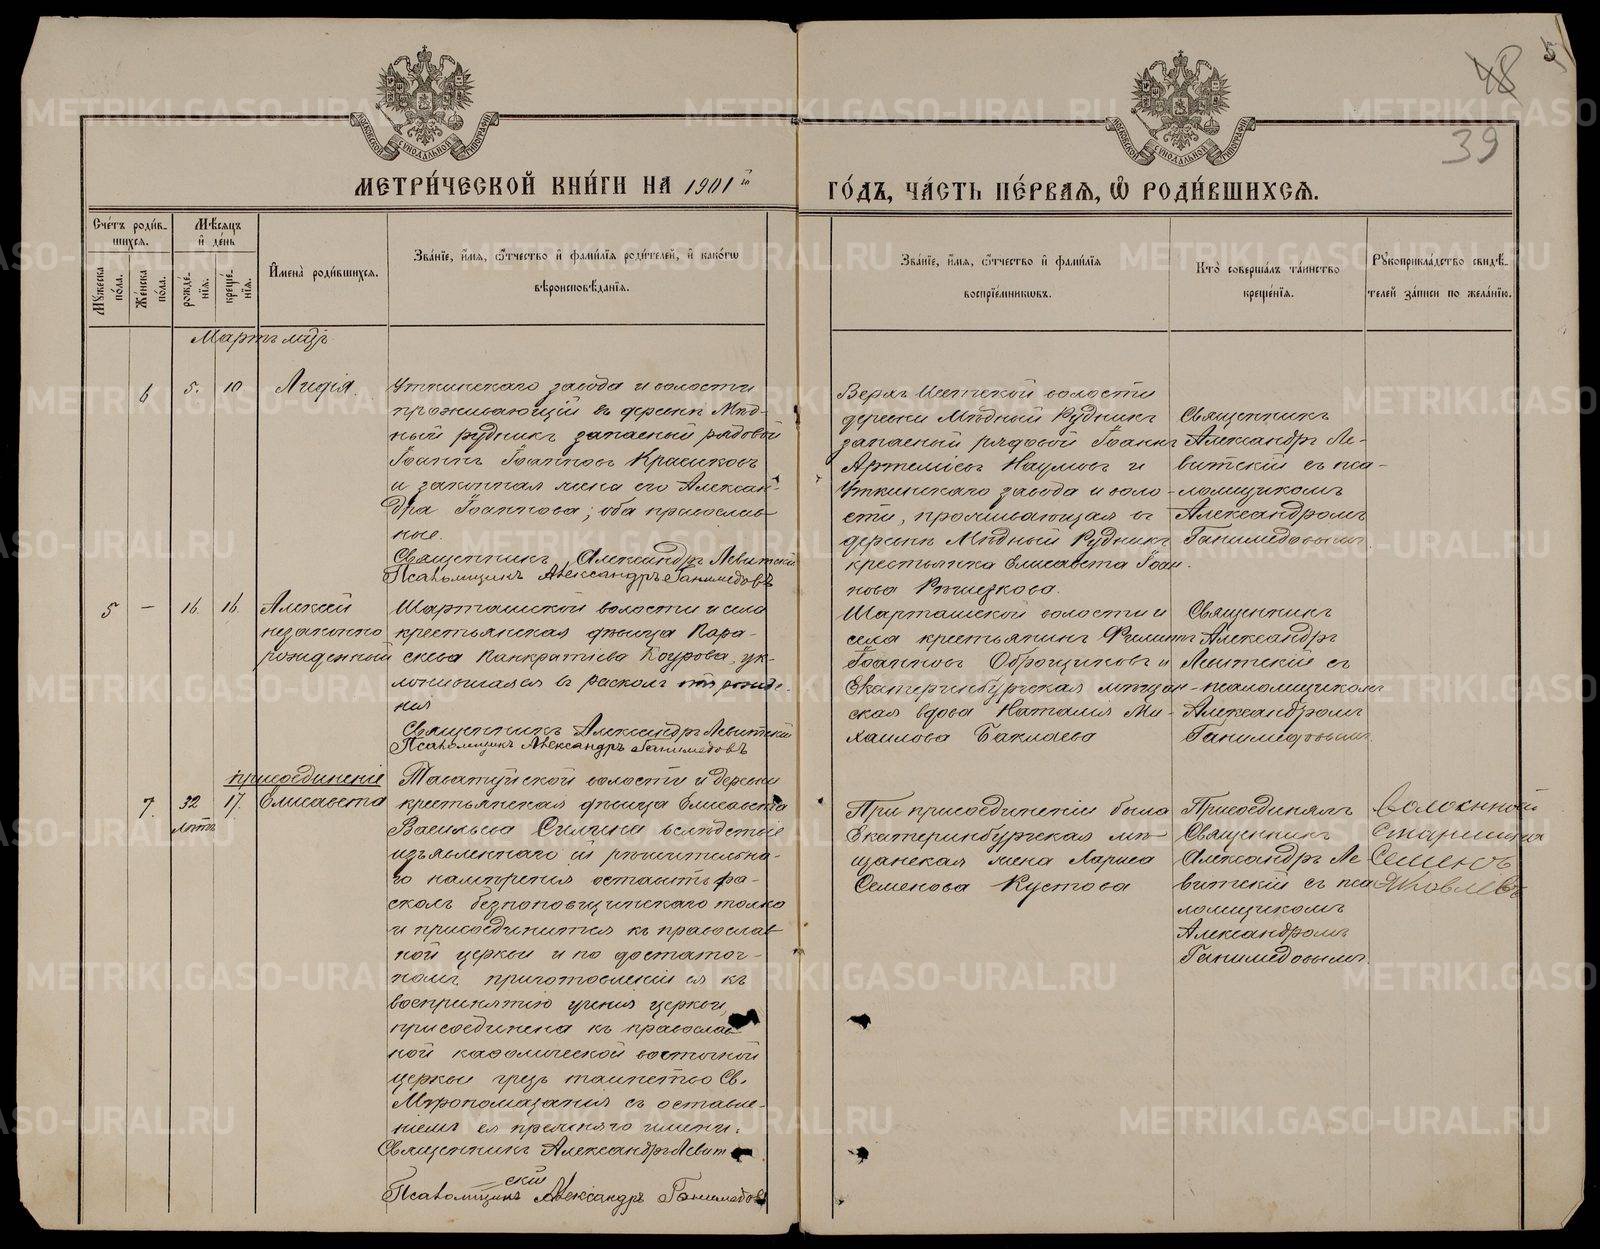 48
5
39
МЕТРИ́ЧЕСКОЙ КНИ́ГИ НА 1901й
ГО́ДЪ, ЧА́СТЬ ПЕ́РВАѦ, Ѽ РОДИ́ВШИХСѦ.
Сче́тъ роди́в-
шихсѧ.
Мужеска по́ла.
Же́нска по́ла.
Мѣ́сѧцъ
и҆ де́нь
рожде́-
нїѧ.
креще́-
нїѧ.
И҆мена̀ роди́вшихсѧ.
Зва́нїе, и҆́мѧ, ѻ҆́тчество и҆ фами́лїѧ роди́телей, и҆ како́гѡ
вѣроисповѣ́данїѧ.
Зва́нїе, и҆́мѧ, ѻ҆́тчество и҆ фами́лїѧ
воспрїе́мникѡвъ.
Кто̀ соверша́лъ та́инство
креще́нїѧ.
Рꙋкоприкла́дство свидѣ́-
телей за́писи по жела́нїю.
Мартъ мцъ
6
5.
10
Лидія.
Уткинскаго завода и волости
проживающій въ деревнѣ Мѣд-
ный рудникъ запасный рядовой
Іоаннъ Іоанновъ Красиковъ
и законная жена его Алексан-
дра Іоаннова; оба православ-
ные.
Священникъ Александръ Левитскій
Псаломщикъ Александръ Ганимедовъ
Верхъ Исетской волости
деревни Мѣдный Рудникъ
запасный рядовой Іоаннъ
Артеміевъ Наумовъ и
Уткинскаго завода и воло-
сти, проживающая въ
деревнѣ Мѣдный Рудникъ
крестьянка Елисавета Іоан-
нова
Священникъ
Александръ Ле-
витскій съ пса-
ломщикомъ
Александромъ
Ганимедовымъ.
5
—
16.
16.
Алексій
незаконно
рожденный
Шарташской волости и села
крестьянская дѣвица Пара-
скева Панкратіева Коурова, ук-
лонившаяся въ расколъ отъ рожде-
нія
Священникъ Александръ Левитскій
Псаломщикъ Александръ Ганимедовъ
Шарташской волости и
села крестьянинъ Филиппъ
Іоанновъ Оброщиковъ и
Екатеринбургская мѣщан-
ская вдова Наталія Ми-
хаилова Баклаева
Священникъ
Александръ
Левитскій съ
псаломщикомъ
Александромъ
Ганимедовымъ.
присоединеніе
7.
32
лѣтъ
17.
Елисавета
Таватуйской волости и деревни
крестьянская дѣвица Елисавета
Васильева Силина вслѣдствіе
изъявленнаго ей рѣшительна-
го намѣренія оставить ра-
сколъ безпоповщинскаго толка
и присоединится къ православ
ной церкви и по достаточ-
номъ приготовленіи ея къ
воспринятію ученія церкви,
присоединена къ православ
ной каѳолической восточной
церкви чрезъ таинство Св.
Мѵропомазанія съ оставле-
ніемъ ея прежняго имени.
Священникъ Александръ Левит
скій
Псаломщикъ Александръ Ганимедовъ
При присоединеніи была
Екатеринбургская мѣ-
щанская жена Лариса
Семенова Кустова
Присоединялъ
Священникъ
Александръ Ле
витскій съ пса
ломщикомъ
Александромъ
Ганимедовымъ.
Волосной
Старшина
Семенъ
Яковлевъ